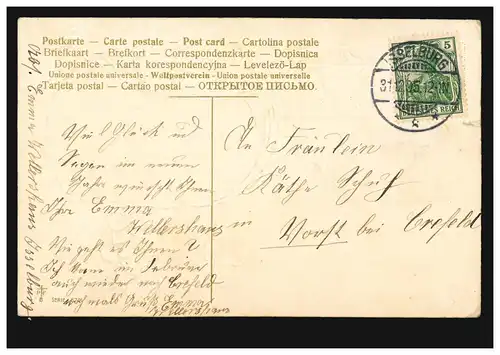 Postkarte — Carte postale — Post card — Cartolina postale
Briefkaart — Brefkort — Correspondenzkarte — Dopisnica
Dopisnice — Karta korespondencyjna — Levelező-Lap
Unione postale universale - Weltpostverein - Union postale universelle
Tarjeta postal — Cartao postal — ОТКРЫТОЕ ПИСЬМО.
ISSELBURG
5
REICH
Viel Glück und
Segen im neuen
Jahr wünscht Ihnen
Ihre Emma
Wellershaus
Wie geht es Ihnen?
Ich komme im Februar
auch wieder nach Crefeld
nochmals Gruß Emma
Wellershaus
An Fräulein
Käthe Schuf
in Vorst bei Crefeld
Abs. Emma Wellershaus Isselburg